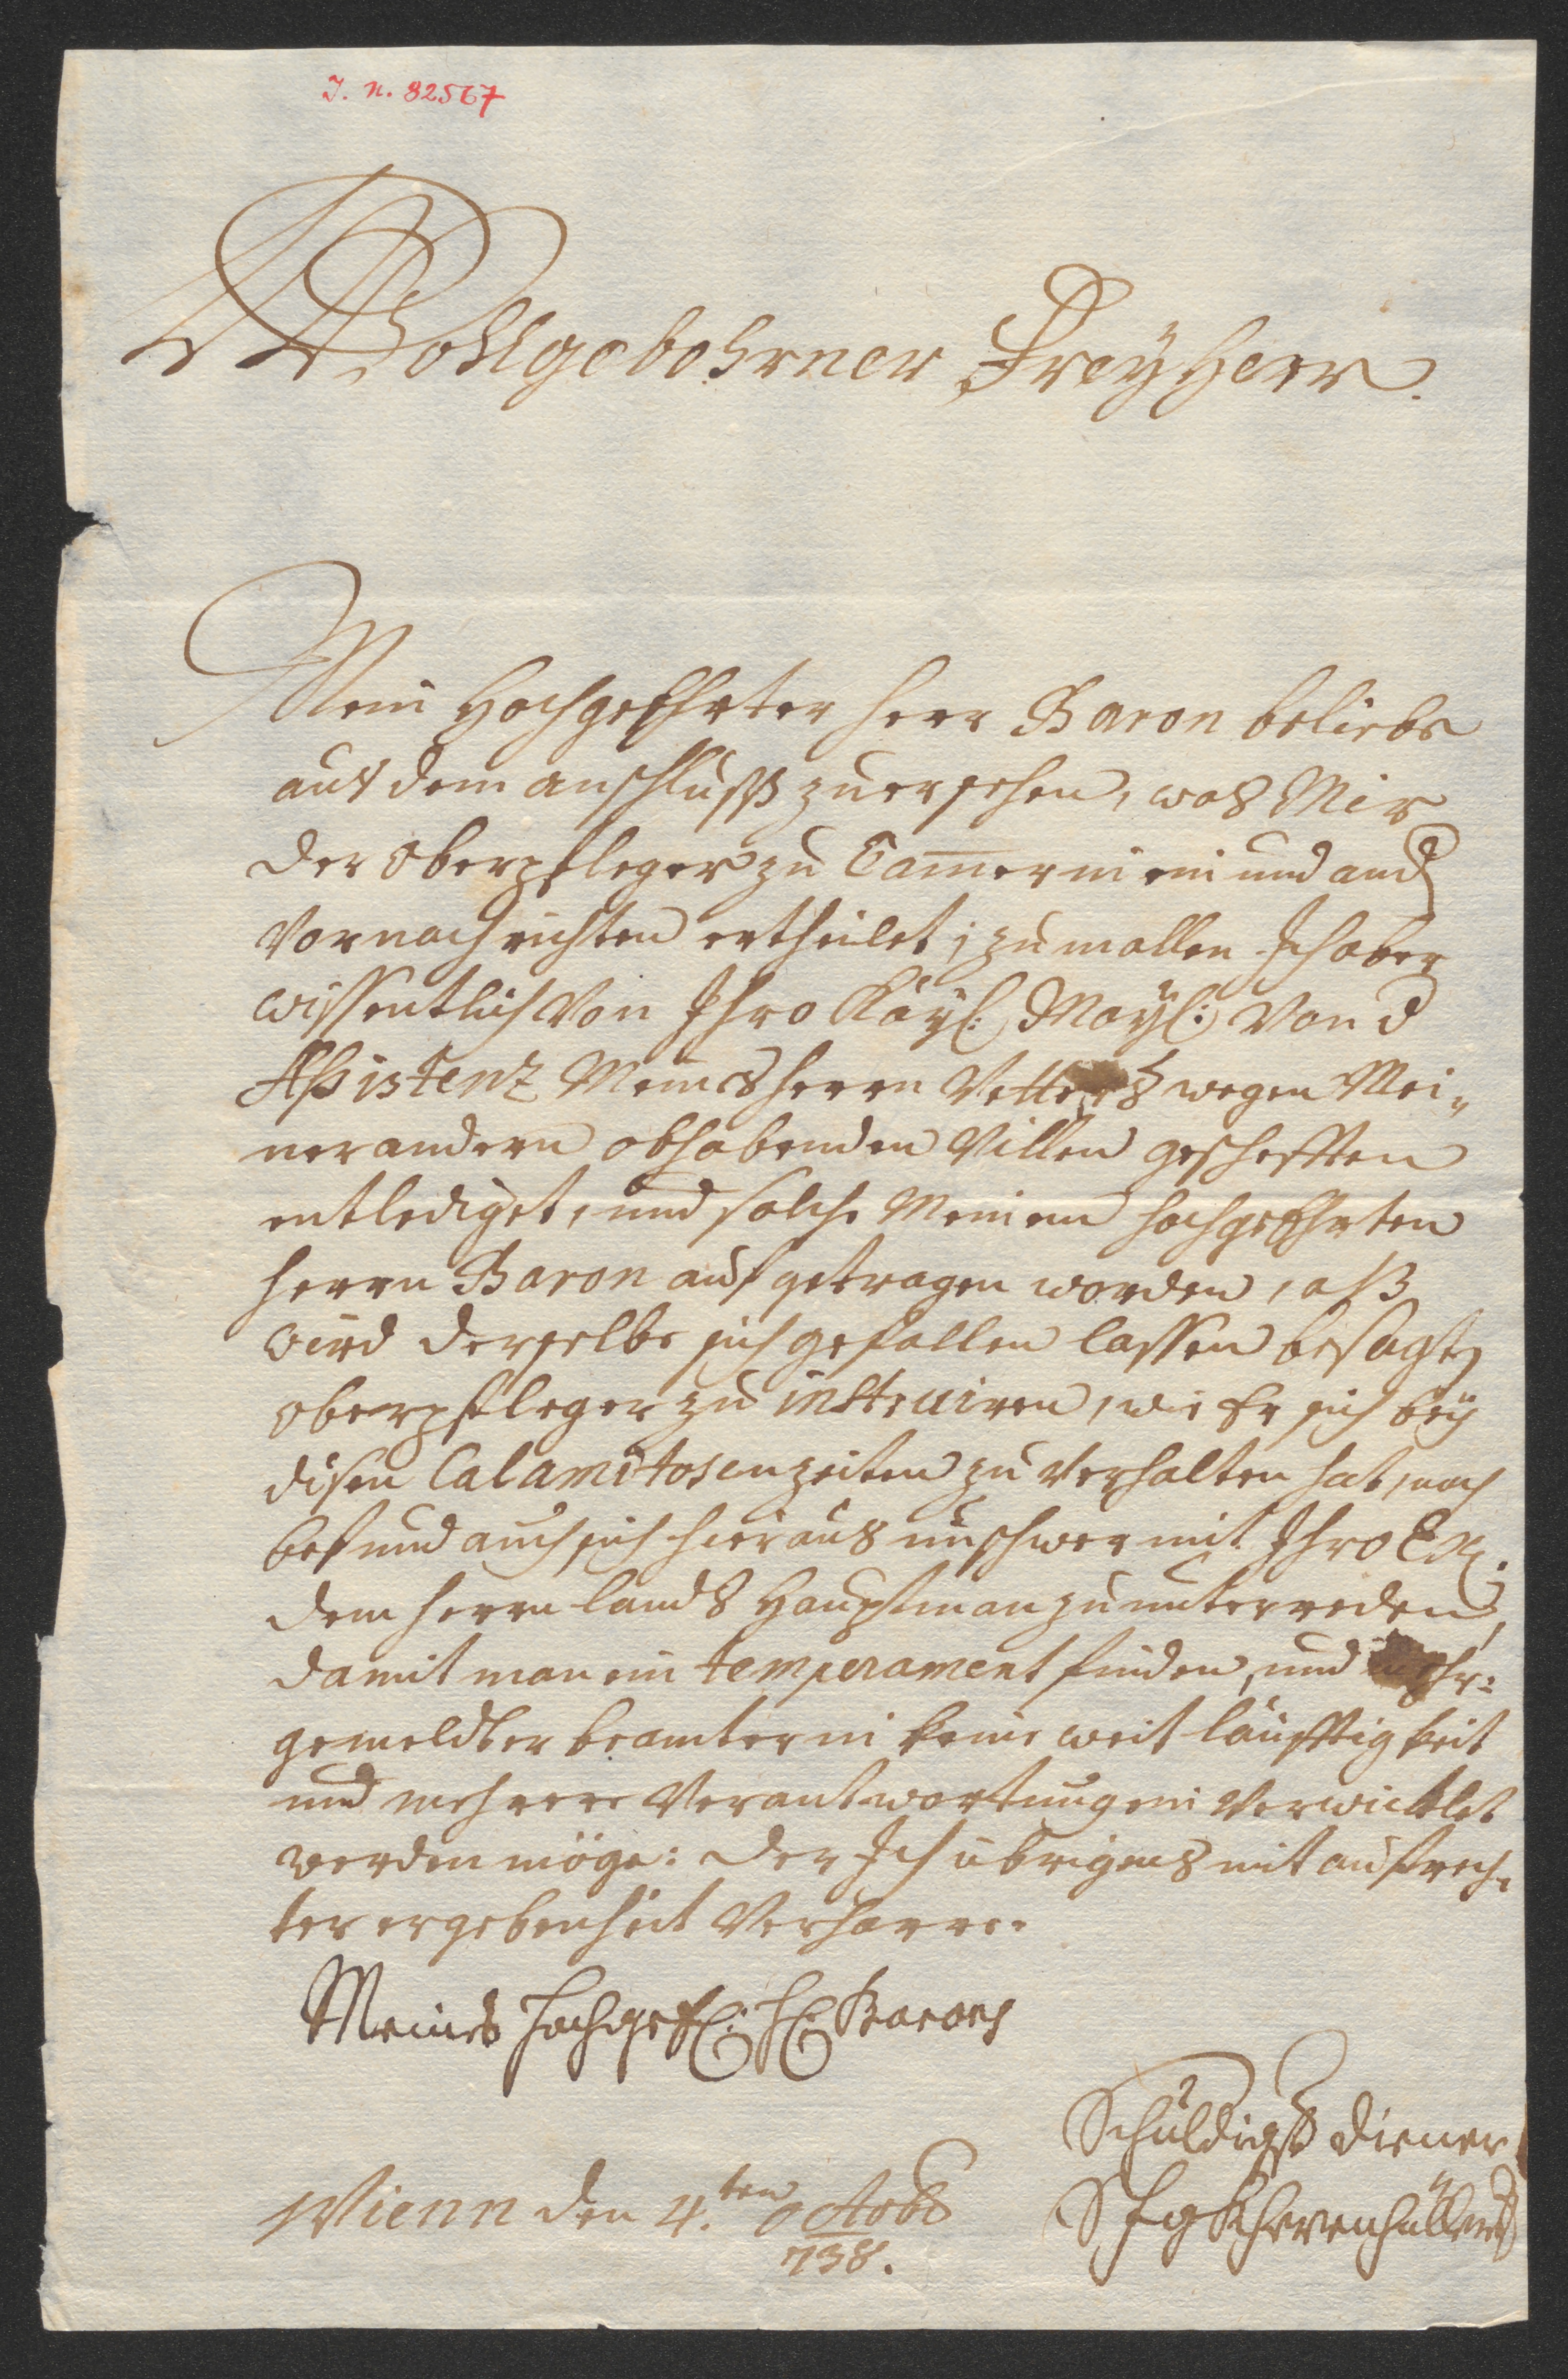 J. N. 82567
Wohlgebohrner Freyherr.
Mein Hochgeehrter Herr Baron beliebe
aus dem anschluß zuersehen, was Mir
der Oberpfleger zu Tamer in ein und and
vor nachrichten ertheilet; zumallen Ich aber
wissentlich von Ihro Kayl: Mayl: von d
Assistenz Meines Herrn Vetters wegen Mei„
ner andern obhabenden Villen gescheften
entlediget, und solche Meinem hochgeehrten
Herrn Baron aufgetragen worden, alß
wird derselbe sich gefallen lassen besagten
Oberpfleger zu instruiren, wie Er sich bey
disen Calamitosen zeiten zu verhalten hat, nach
befund auch sich hieraus unschwer mit Ihro Ex:
dem Herrn Lands Hauptman zu unterreden,
damit man ein temperament finden, und mehr:
gemeldter beamter in keine weitläufftigkeit
und mehrere Verantwortungen verwicklet
werden möge: der Ich übrigens mit aufrech„
ter ergebenheit verharre.
Meines hochgeE: H: Barons
Schuldigst diener
Wienn den 4.ten Octobr
738.
S F g Khevenhüller